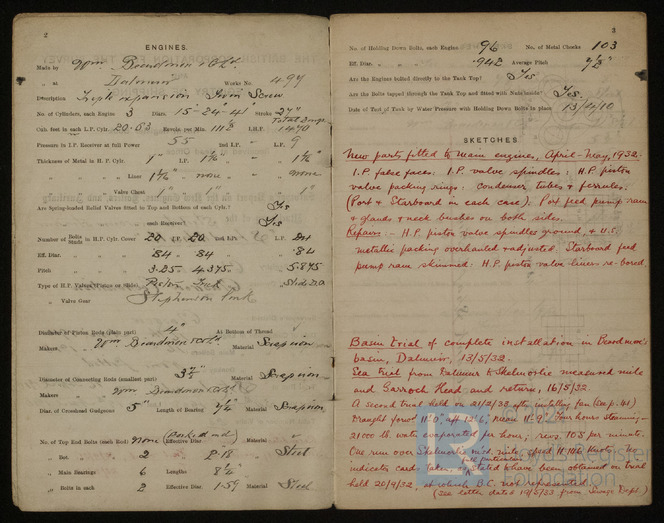 2
ENGINES.
Made by Wm. Beardmore & Co. Ld.
„ at Dalmuir Works No. 497
Description Triple expansion Twin Screw
No. of Cylinders, each Engine 3 Diars. 15"-24"-41" Stroke 27"
Cub. feet in each L.P. Cylr. 20.63 Revols. per Min. 112 I.H.P. 1470
Pressure in I.P. Receiver at full Power 55 2nd I.P. „ L.P. 9
Thickness of Metal in H.P. Cylr. 1" I.P.
„ „ Liner none „ none
„ „ Valve Chest 1" „ 1" „ 1"
Are Spring-loaded Relief Valves fitted to Top and Bottom of each Cylr.? Yes
„ „ each Receiver? Yes
Number of Bolts Studs in H.P. Cylr. Cover 20 I.P. 20 2nd I.P. L.P. 24
Eff. Diar. „ .84 .84 .84
Pitch „ 3.25 4.375 5.875
Type of H.P. Valves (Piston or Slide) Piston
„ Valve Gear Stephenson Link
Diameter of Piston Rods (plain part) 4" At Bottom of Thread
Makers Wm Beardmore & Co Ld Material
Diameter of Connecting Rods (smallest part)
Makers Wm Beardmore & Co Ld Material
Diar. of Crosshead Gudgeons 5" Length of Bearing Material
No. of Top End Bolts (each Rod) None Effective Diar. Material
„ Bot. „ „ 2 „ 2.18 „ Steel
„ Main Bearings 6 Lengths 8½"
„ Bolts in each 2 Effective Diar. 1.59 Material Steel
3
No. of Holding Down Bolts, each Engine 96 No. of Metal Chocks 103
Eff. Diar. „ .942 Average Pitch
Are the Engines bolted directly to the Tank Top? Yes
Are the Bolts tapped through the Tank Top and fitted with Nuts inside? Yes.
Date of Test of Tank by Water Pressure with Holding Down Bolts in place
SKETCHES.
New parts fitted to main engine, April-May, 1932.
I.P. false faces: I.P. valve spindles: H.P. piston
valve packing rings: condenser tubes & ferrules.
(Port & Starboard in each case). Port feed pump ram
& glands & neck bushes on both sides.
Repairs - H.P. piston valve spindles ground, & U.S.
metallic packing overhauled & adjusted. Starboard feed
pump ram skimmed: H.P. piston valve liners re-bored.
Basin trial of complete installation in Beardmore's
basin, Dalmuir, 13/5/32.
Sea trial from Dalmuir to Skelmorlie measured mile
and Garroch Head and return, 16/5/32.
A second trial held on 21/2/33 after installing fan (Dep. 41)
Draught forwd 11'0", aft 12'6", mean 11'9". Four hours steaming -
21000 lb. water evaporated per hour; revs. 103 per minute.
One run over Skelmorlie m'd mile, speed 11.106 knots. No
indicator card taken. full particulars stated to have been obtained on trial
held 20/9/32, at which B.C. not represented.
(See letter dated 19/5/33 from Sewage Dept.)
© 20
Lloyd's Register
Foundation